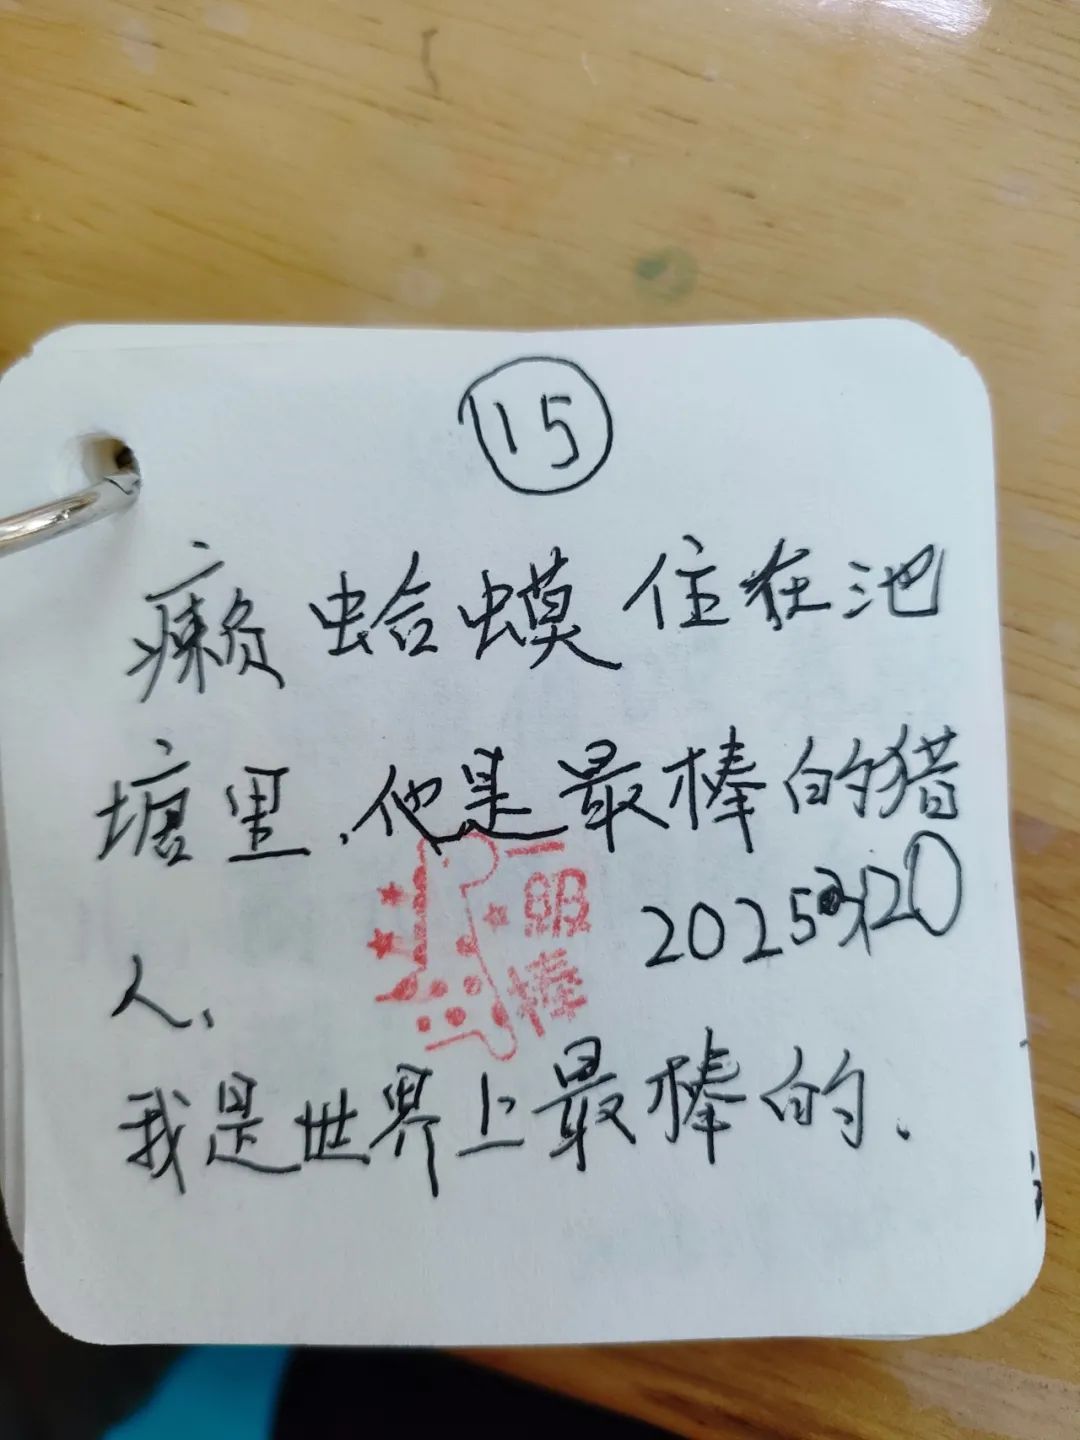 15
癞蛤蟆住在池
塘里、他是最棒的猎
2025 3/20
人、
一级棒
我是世界上最棒的.